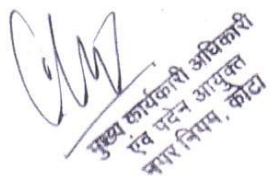 मुख्य कार्यकारी अधिकारी
एवं पदेन आयुक्त
नगर निगम, कोटा